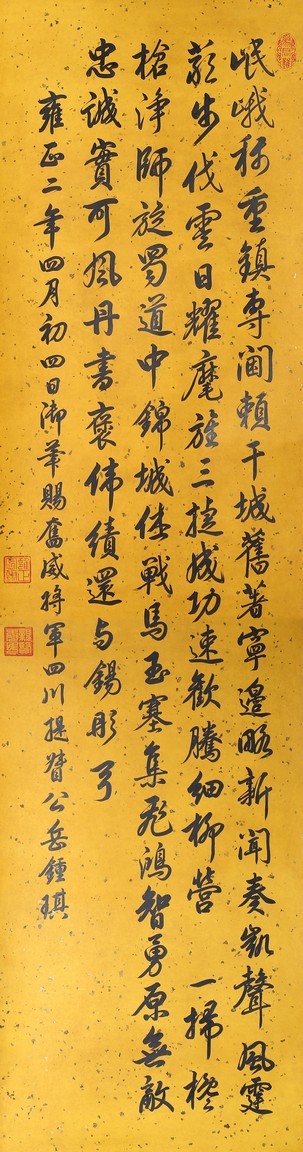 岷峨称重鎮專閫賴干城舊著寧邊略新聞奏凱聲風霆
嚴步伐雲日耀麾旌三捷成功速歡騰細柳營 一掃欃
槍淨師旋蜀道中錦城休戰馬玉塞集飛鴻智勇原無敵
忠誠實可風丹書褒偉績還与錫彤弓
雍正二年四月初四日御筆賜奮威將軍四川提督公岳鍾琪